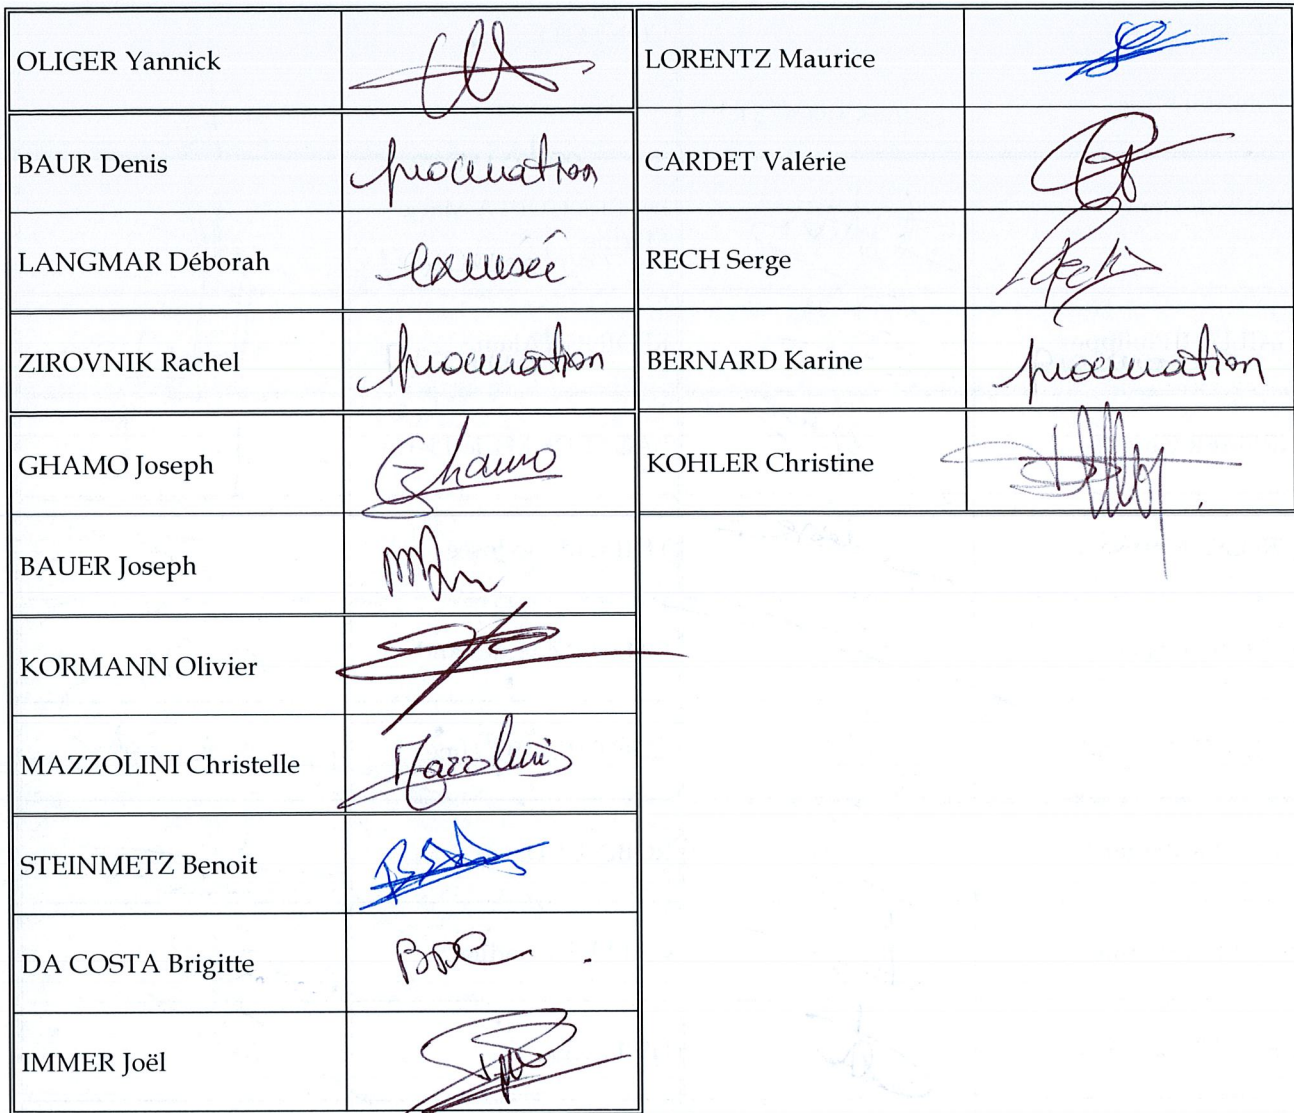 OLIGER Yannick
BAUR Denis procuration
LANGMAR Déborah excusée
ZIROVNIK Rachel procuration
GHAMO Joseph Ghamo
BAUER Joseph
KORMANN Olivier
MAZZOLINI Christelle Mazzolini
STEINMETZ Benoit
DA COSTA Brigitte
IMMER Joël
LORENTZ Maurice
CARDET Valérie
RECH Serge Rech
BERNARD Karine procuration
KOHLER Christine